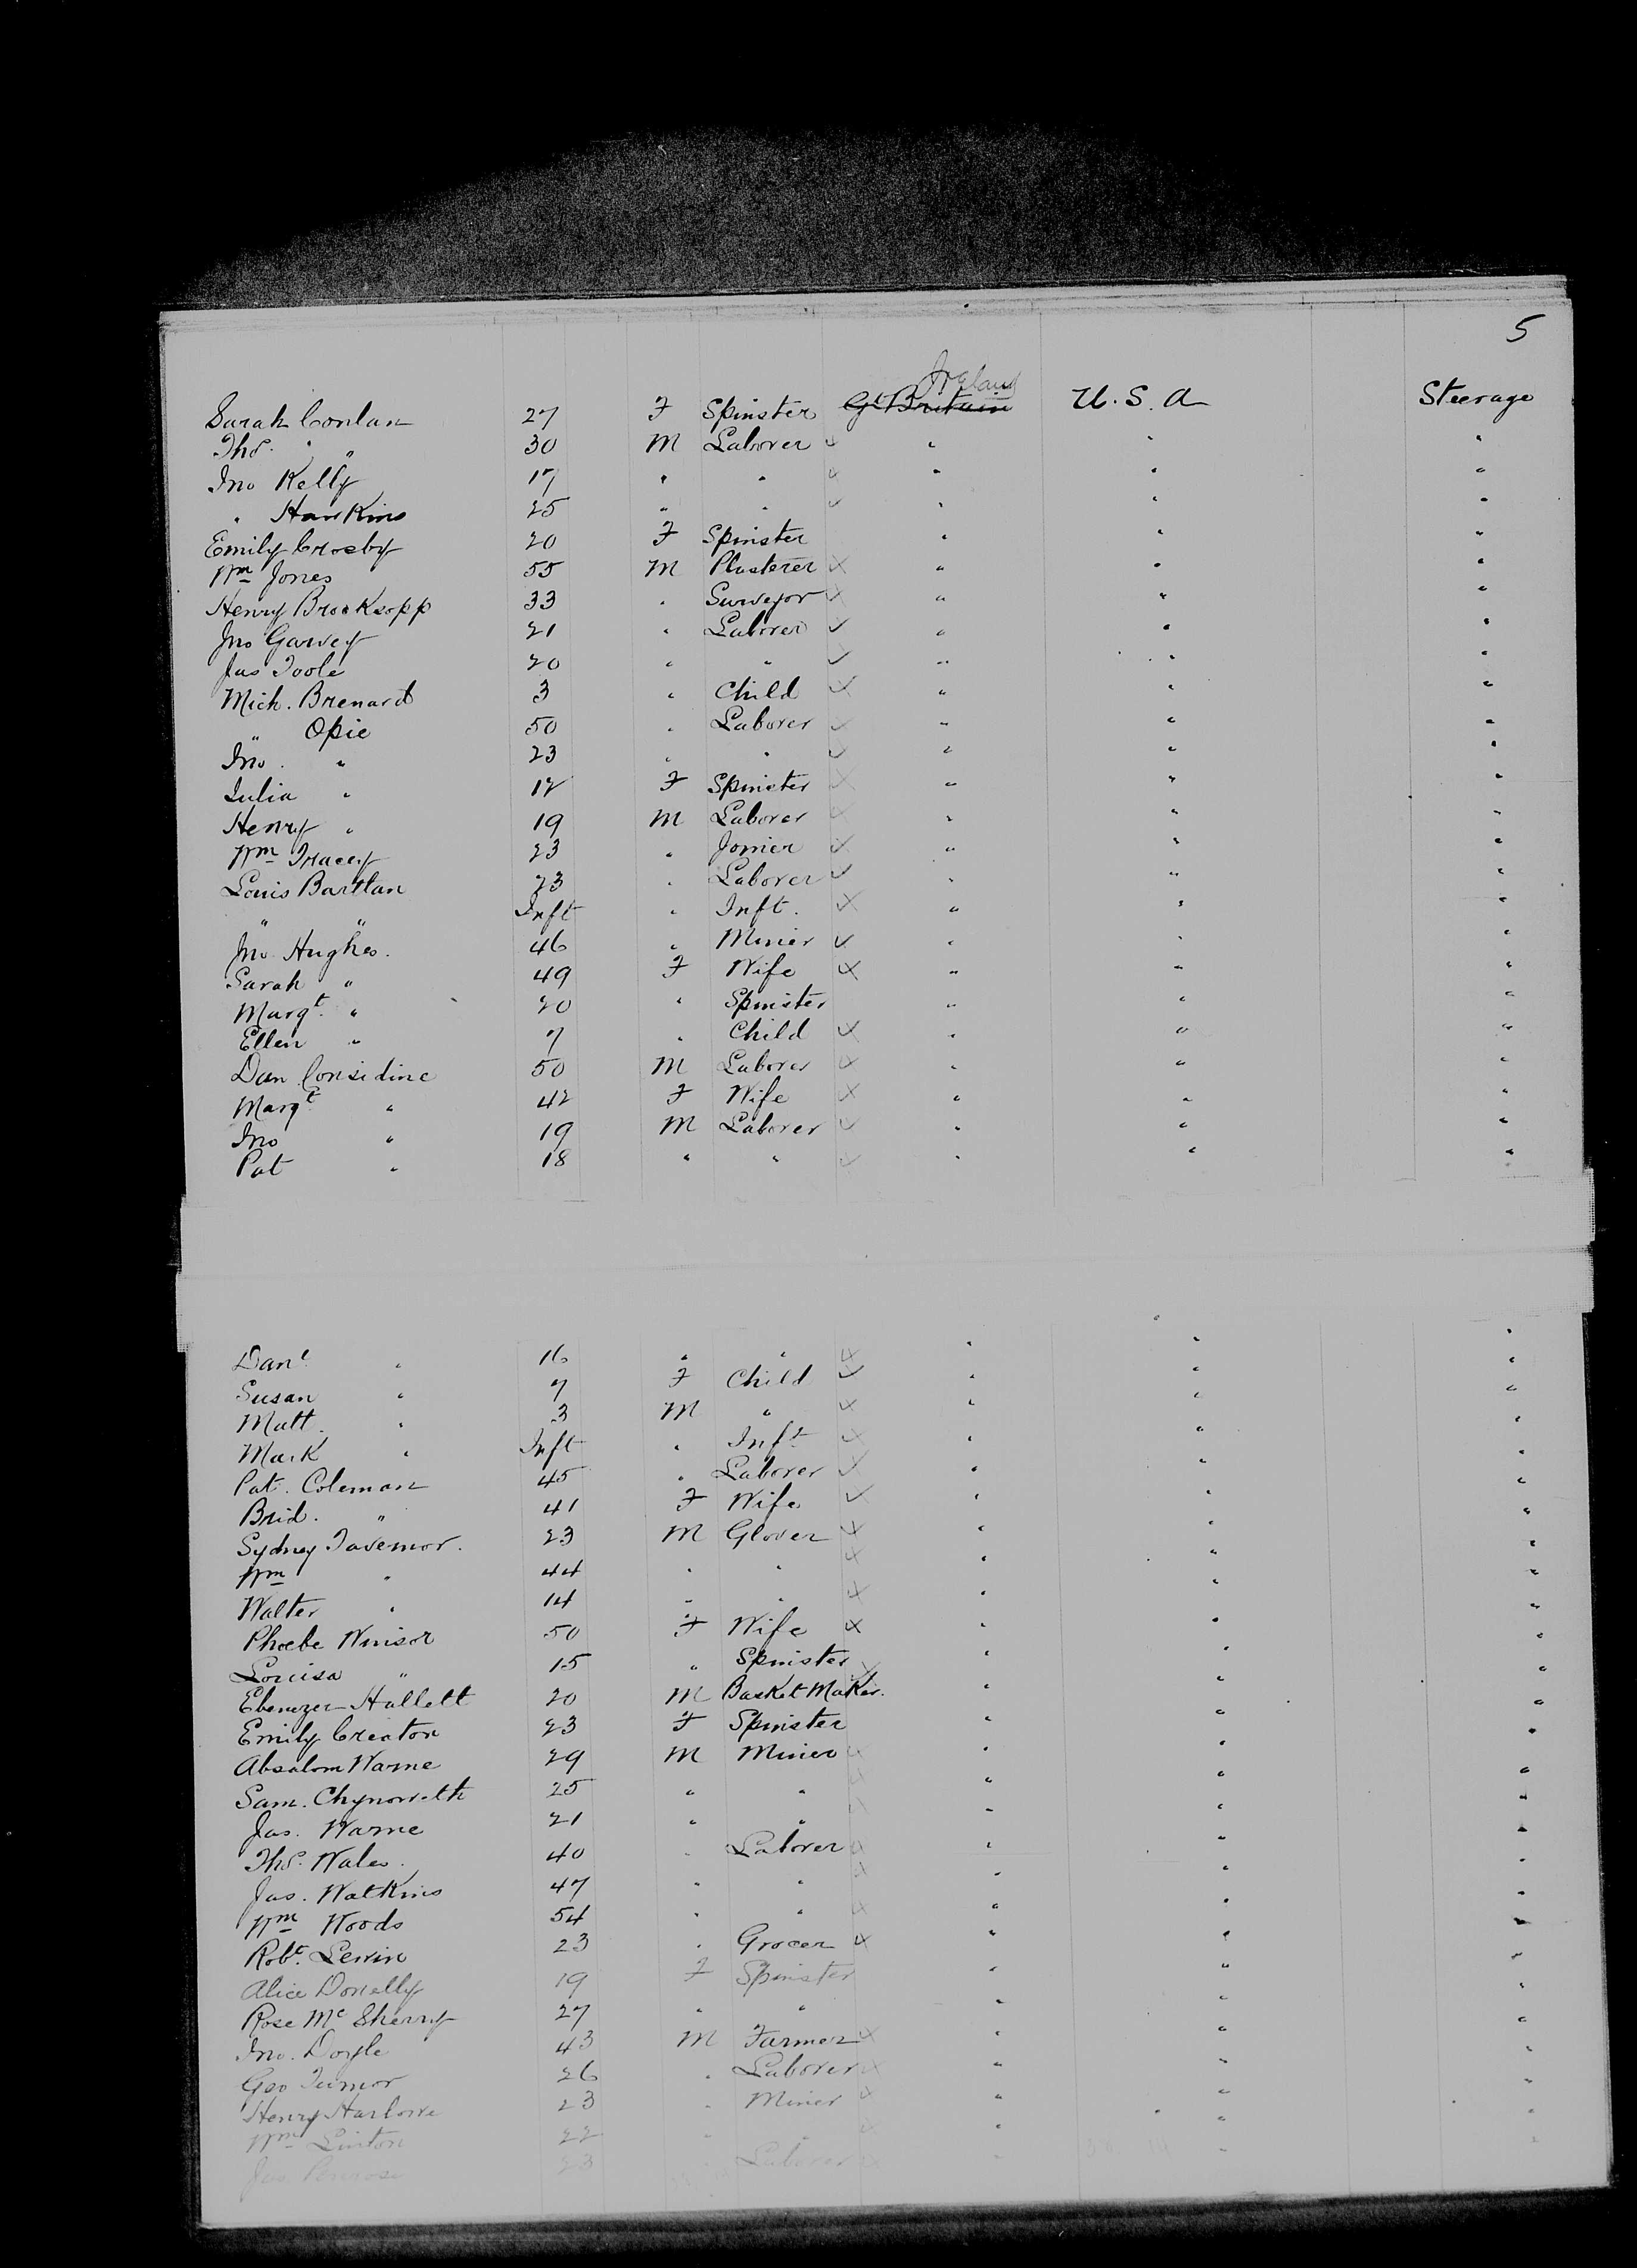 5
Ireland
Sarah Conlan 27 F Spinster Gt Britain U.S.A Steerage
Thos. " 30 M Laborer " " "
Jno Kelly 17 " " " " "
" Hawkins 25 " " " " "
Emily Crosby 20 F Spinster " " "
Wm Jones 55 M Plasterer " " "
Henry Brooksopp 33 " Surveyor " " "
Jno Garvey 21 " Laborer " " "
Jas Toole 20 " " " " "
Mich. Brenard 3 " Child " " "
" Opie 50 " Laborer " " "
Jno. " 23 " " " " "
Julia " 17 F Spinster " " "
Henry " 19 M Laborer " " "
Wm Tracey 23 " Joiner " " "
Louis Barttan 23 " Laborer " " "
" " Inft " Inft. " " "
Jno Hughes. 46 " Miner " " "
Sarah " 49 F Wife " " "
Margt. " 20 " Spinster " " "
Ellen " 7 " Child " " "
Dan Considine 50 M Laborer " " "
Margt " 42 F Wife " " "
Jno " 19 M Laborer " " "
Pat " 18 " " " " "
Danl " 16 " " " " "
Susan " 7 F Child " " "
Matt. " 3 M " " " "
Mark " Inft " Inft " " "
Pat. Coleman 45 " Laborer " " "
Brid. " 41 F Wife " " "
Sydney Tavernor. 23 M Glover " " "
Wm " 44 " " " " "
Walter " 14 " " " " "
Phoebe Winsor 50 F Wife " " "
Louisa " 15 " Spinster " " "
Ebenezer Hallett 20 M Basket Maker. " " "
Emily Creaton 23 F Spinster " " "
Absalom Warne 29 M Miner " " "
Sam. Chynoweth 25 " " " " "
Jas. Warne 21 " " " " "
Thos. Wales. 40 " Laborer " " "
Jas. Watkins 47 " " " " "
Wm Woods 54 " " " " "
Robt. Lewin 23 " Grocer " " "
Alice Donelly 19 F Spinster " " "
Rose Mc Sherry 27 " " " " "
Jno. Doyle 43 M Farmer " " "
Geo 26 " Laborer " " "
Henry Harlowe 23 " Miner " " "
Wm Linton 22 " " " " "
Jas Penrose 23 " Laborer " " "